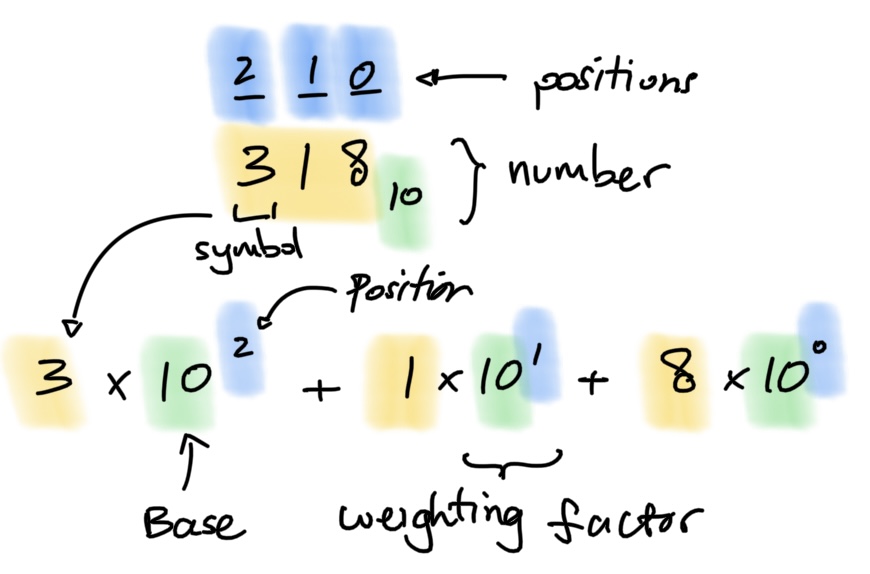 2 1 0 positions
3 1 8 10 number
symbol
Position
3 × 10² + 1 × 10¹ + 8 × 10⁰
Base weighting factor